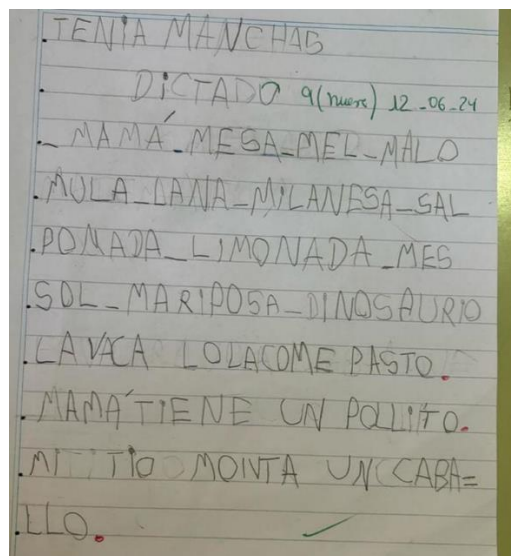 .TENIA MANCHAS
. DICTADO 9(nueve) 12-06-24
._ MAMÁ_MESA_MEL_MALO
.MULA_LANA_MILANESA_SAL
.POMADA_LIMONADA_MES
.SOL_MARIPOSA_DINOSAURIO
.LA VACA LOLACOME PASTO.
.MAMÁ TIENE UN POLLITO.
.MI TIO MONTA UN CABA=
.LLO.